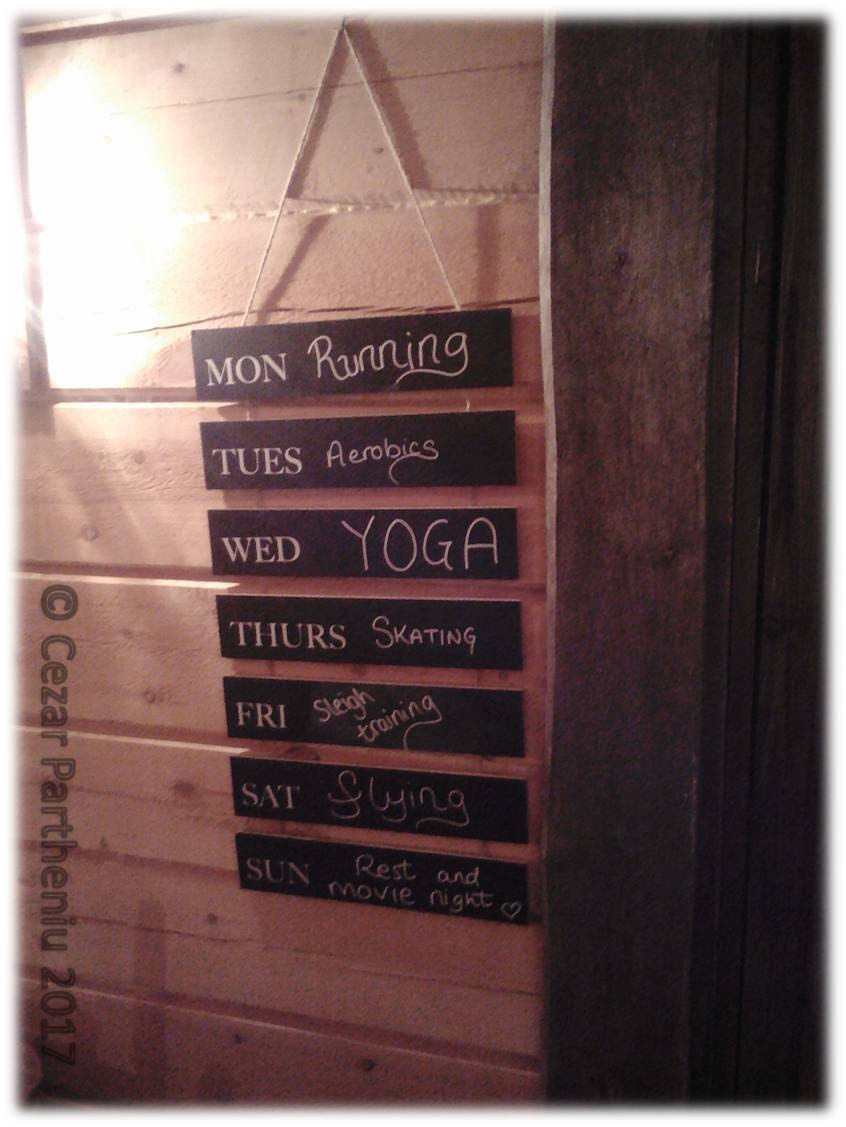 MON Running
TUES Aerobics
WED YOGA
THURS SKATING
FRI sleigh
training
SAT flying
SUN Rest and
movie night ♡
© Cezar Partheniu 2017